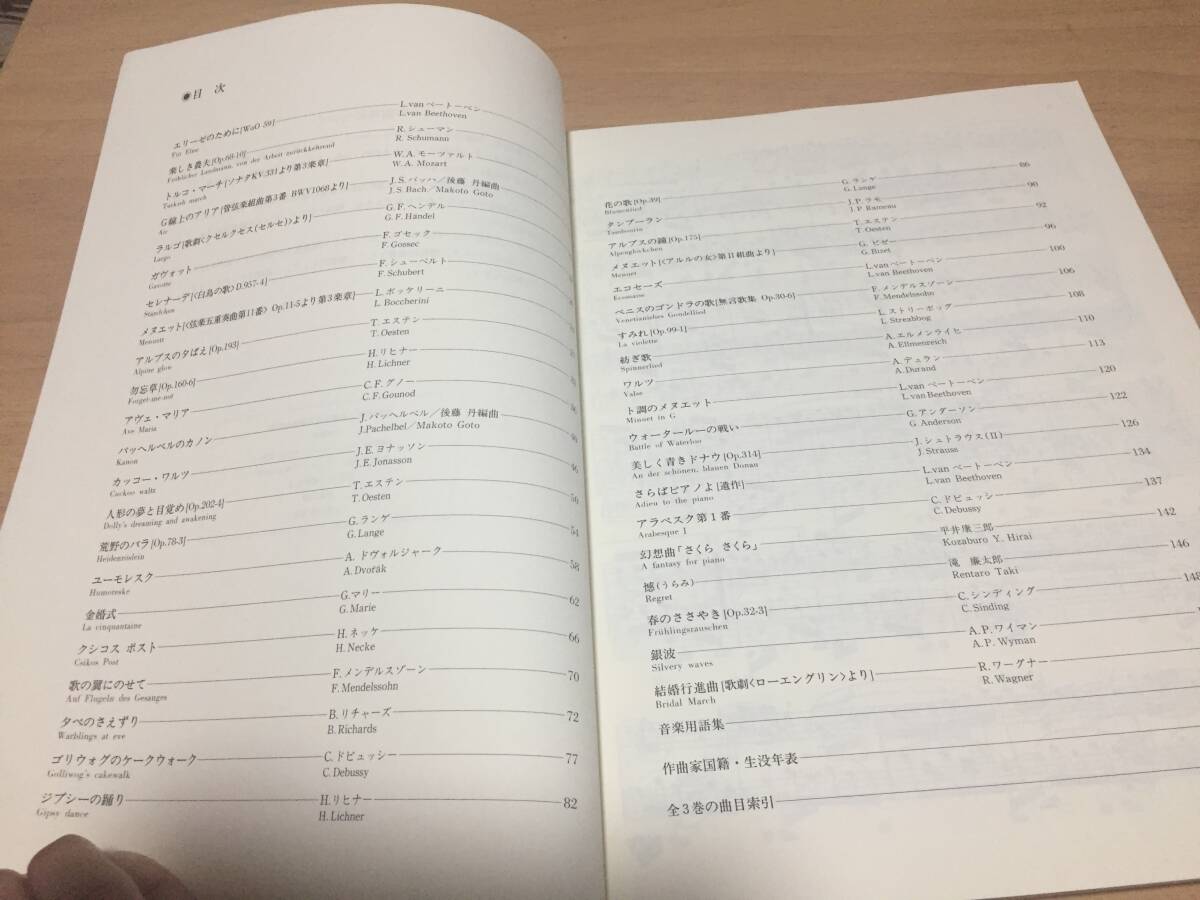 ◉目 次
エリーゼのために[WoO 59] L.van ベートーベン
Für Elise L.van Beethoven
楽しき農夫[Op.68-10] R.シューマン
Fröhlicher Landmann, von der Arbeit zurückkehrend R. Schumann
トルコ・マーチ[ソナタKV.331より第3楽章] W.A.モーツァルト
Turkish march W.A. Mozart
G線上のアリア[管弦楽組曲第3番 BWV1068より] J.S.バッハ/後藤 丹編曲
Air J.S.Bach/Makoto Goto
ラルゴ[歌劇<クセルクセス(セルセ)>より] G.F.ヘンデル
Largo G.F.Händel
ガヴォット F.ゴセック
Gavotte F.Gossec
セレナーデ[<白鳥の歌>D.957-4] F.シューベルト
Ständchen F.Schubert
メヌエット[<弦楽五重奏曲第11番> Op.11-5より第3楽章] L.ボッケリーニ
Menuett L. Boccherini
アルプスの夕ばえ[Op.193] T.エステン
Alpine glow T.Oesten
勿忘草[Op.160-6] H.リヒナー
Forget-me-not H.Lichner
アヴェ・マリア C.F.グノー
Ave Maria C.F.Gounod
パッヘルベルのカノン J.パッヘルベル/後藤 丹編曲
Kanon J.Pachelbel/Makoto Goto
カッコー・ワルツ J.E.ヨナッソン 46
Cuckoo waltz J.E.Jonasson
人形の夢と目覚め[Op.202-4] T.エステン 50
Dolly's dreaming and awakening T.Oesten
荒野のバラ[Op.78-3] G.ランゲ 54
Heidenröslein G.Lange
ユーモレスク A.ドヴォルジャーク 58
Humoreske A.Dvořák
金婚式 G.マリー 62
La cinquantaine G.Marie
クシコス ポスト H.ネッケ 66
Csikos Post H.Necke
歌の翼にのせて F.メンデルスゾーン 70
Auf Flügeln des Gesanges F.Mendelssohn
夕べのさえずり B.リチャーズ 72
Warblings at eve B.Richards
ゴリウォグのケークウォーク C.ドビュッシー 77
Golliwog's cakewalk C.Debussy
ジプシーの踊り H.リヒナー 82
Gipsy dance H.Lichner
花の歌[Op.39] G.ランゲ 86
Blumenlied G.Lange
タンブーラン J.P.ラモ 90
Tambourin J.P.Rameau
アルプスの鐘[Op.175] T.エステン 92
Alpenglöckchen T.Oesten
メヌエット[<アルルの女>第II組曲より] G.ビゼー 96
Menuet G.Bizet
エコセーズ L.van ベートーベン 100
Ecossaise L.van Beethoven
ベニスのゴンドラの歌[無言歌集 Op.30-6] F.メンデルスゾーン 106
Venetianisches Gondellied F.Mendelssohn
すみれ[Op.99-1] L.ストリーボッグ 108
La violette L.Streabbog
紡ぎ歌 A.エルメンライヒ 110
Spinnerlied A.Ellmenreich
ワルツ A.デュラン 113
Valse A.Durand
ト調のメヌエット L.van ベートーベン 120
Minuet in G L.van Beethoven
ウォータールーの戦い G.アンダーソン 122
Battle of Waterloo G.Anderson
美しく青きドナウ[Op.314] J.シュトラウス(II) 126
An der schönen, blauen Donau J.Strauss
さらばピアノよ[遺作] L.van ベートーベン 134
Adieu to the piano L.van Beethoven
アラベスク第1番 C.ドビュッシ 137
Arabesque I C.Debussy
幻想曲「さくら さくら」 平井康三郎 142
A fantasy for piano Kozaburo Y. Hirai
憾(うらみ) 滝 廉太郎 146
Regret Rentaro Taki
春のささやき[Op.32-3] C.シンディング 148
Frühlingsrauschen C.Sinding
銀波 A.P.ワイマン
Silvery waves A.P.Wyman
結婚行進曲[歌劇<ローエングリン>より] R.ワーグナー
Bridal March R.Wagner
音楽用語集
作曲家国籍・生没年表
全3巻の曲目索引